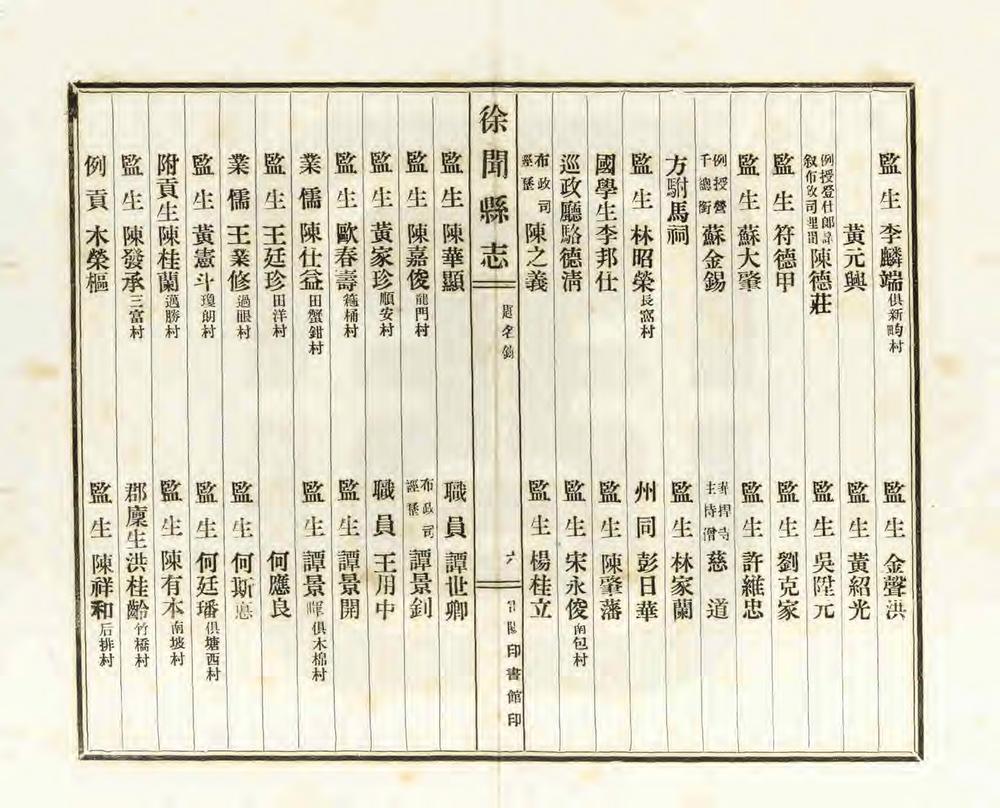 監生 李麟端 俱新㽛村
監生 金聲洪
黃元興
監生 黃紹光
例授登仕郎
叙布政司理問 陳德莊
監生 吳陞元
監生 符德甲
監生 劉克家
監生 蘇大肇
監生 許維忠
例授營
千總銜 蘇金錫
主持僧 慈道
方駙馬祠
監生 林家蘭
監生 林昭榮 長窩村
州同 彭日華
國學生 李邦仕
監生 陳肇藩
巡政廳 駱德清
監生 宋永俊 南包村
布政司
經歷 陳之義
監生 楊桂立
徐聞縣志
題名錄
六
印書館印
監生 陳華顯
職員 譚世卿
監生 陳嘉俊 龍門村
布政司
經歷 譚景釗
監生 黃家珍 順安村
職員 王用中
監生 歐春壽 箍桶村
監生 譚景開
業儒 陳仕益 田蟹鉗村
監生 譚景暉 俱木棉村
監生 王廷珍 田洋村
何應良
業儒 王業修 過眼村
監生 何斯
監生 黃憲斗 瓊朗村
監生 何廷璠 俱塘西村
附貢生 陳桂蘭 邁勝村
監生 陳有本 南坡村
監生 陳發承 三富村
郡廩生 洪桂齡 竹橋村
例貢 木榮樞
監生 陳祥和 后排村